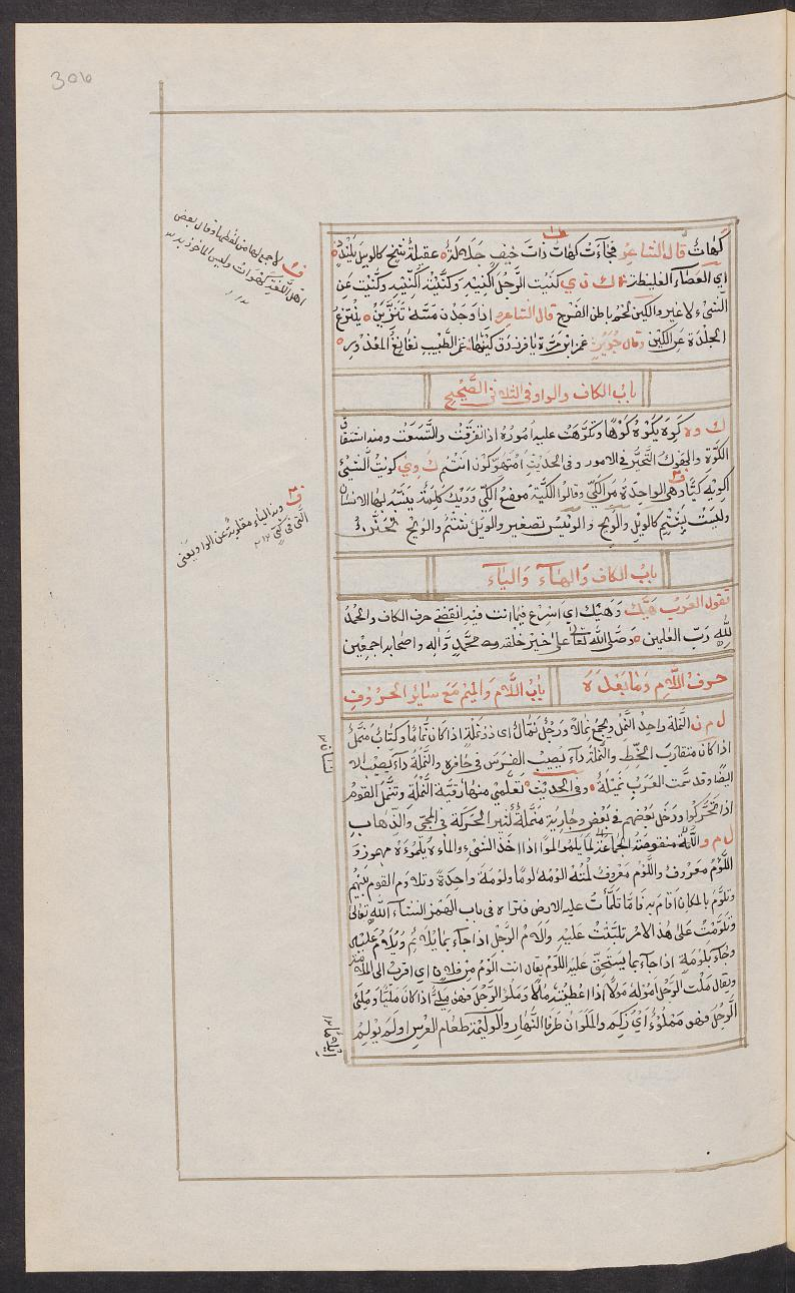 306
كهاتٌ قال الشاعر فجآءَت كهاتٌ ذاتُ خيف جلالةٌ عقيلةُ شيخ كالوبيل يلندد
اي العصآء الغليظة ك ن ي كنَيت الرّجل اكنيه وكنّيته اكنّيه وكنيت عن
الشيء لا غير والكين لحم باطن الفرج قال الشاعر اذا وجدن مسّه تنزّين ينتزع
الجلدة عن الكين وقال جرير غمز ابن مرّة يا فرزدق كينها غمز الطبيب نغانغ المعذور
باب الكاف والواو في الثلاثي الصّحيح
ك و ه كوه يكوه كوها وتكوّهت عليه اموره اذا تفرّقت واتّسعت ومنه اشتقاق
الكوّة والتهوّك التحيّر في الامور وفي الحديث امتهوّكون انتم ك و ي كويت الشيء
اكويه كيّا وهي الواحدة من الكيّ وقالوا الكيّة موضع الكيّ وويك كلمة يتنبّه بها الانسان
وليست بشتم كالويل والويح والويس تصغير والويل شتم والويح تحنّن
باب الكاف والهآء واليآء
تقول العرب هيّك وهيّك اي اسرع فيما انت فيه انقضى حرف الكاف والحمد
للّه ربّ العلمين وصلى الله تعالى على خير خلقه محمّد وآله واصحابه اجمعين
حرف اللام وما بعده
باب اللام والميم مع سائر الحروف
ل م ن النملة واحد النمل ويجمع نمالا ورجل نمال اي ذو نملة اذا كان نمّاما وكتاب منمّل
اذا كان متقارب الخط والنملة داء يصيب الفرس في حافره والنملة داء يصيب
ايضا وقد سمّت العرب نميلة وفي الحديث تعلّمي منها رقية النملة وتنمّل القوم
اذا تحرّكوا ودخل بعضهم في بعض وجارية منمّلة كثير الحركة في المجي والذهاب
ل م و اللّمة منقوصة الجماعة لما يلموا لموا اذا اخذ الشيء والماءه يلموءه مهموز و
اللّؤم معروف واللّوم معروف لمته الومه لوما ولومة واحدة وتلاوم القوم بينهم
وتلوّم بالمكان اقام به فامّا تلمّأت عليه الارض فتراه في باب الهمز انشاء الله تعالى
وتلوّمت على هذا الامر تلبّثت عليه والام الرّجل اذا جآء بما يلام ويلام عليه
وجآء بلومة اذا جآء بما يستحقّ عليه اللّوم يقال انت الوم من فلان اي اقرب الى الملامة
ويقال ملت الرّجل اموله مولا اذا اعطيته مالا وملؤ الرجل فهو مليّ اذا كان مليّا وملئ
الرّجل فهو مملوءٌ اي زكم والملوان طرفا النّهار والوليمة طعام العرس اولم يولم
ف لا جمع لها من لفظها وقال بعض
اهل اللغة كهوات وليس الماخوذ به
ف وهذا الياء مقلوبة عن الواو يعني
الّتي في كيّ
ايلاما